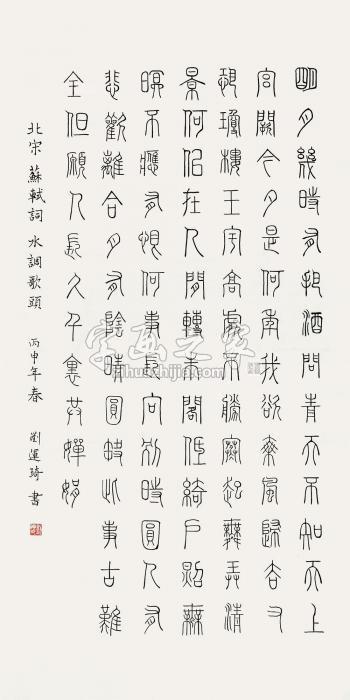 明月幾時有把酒問青天不知天上
宮闕今夕是何年我欲乘風歸去又
恐瓊樓玉宇高處不勝寒起舞弄清
景何佀在人間轉朱閣低綺戶照無
眠不應有恨何事長向別時圓人有
悲歡離合月有陰晴圓缺此事古難
全但願人長久千裏共嬋娟
北宋 蘇軾詞 水調歌頭 丙申年春 劉運琦書
字画之家